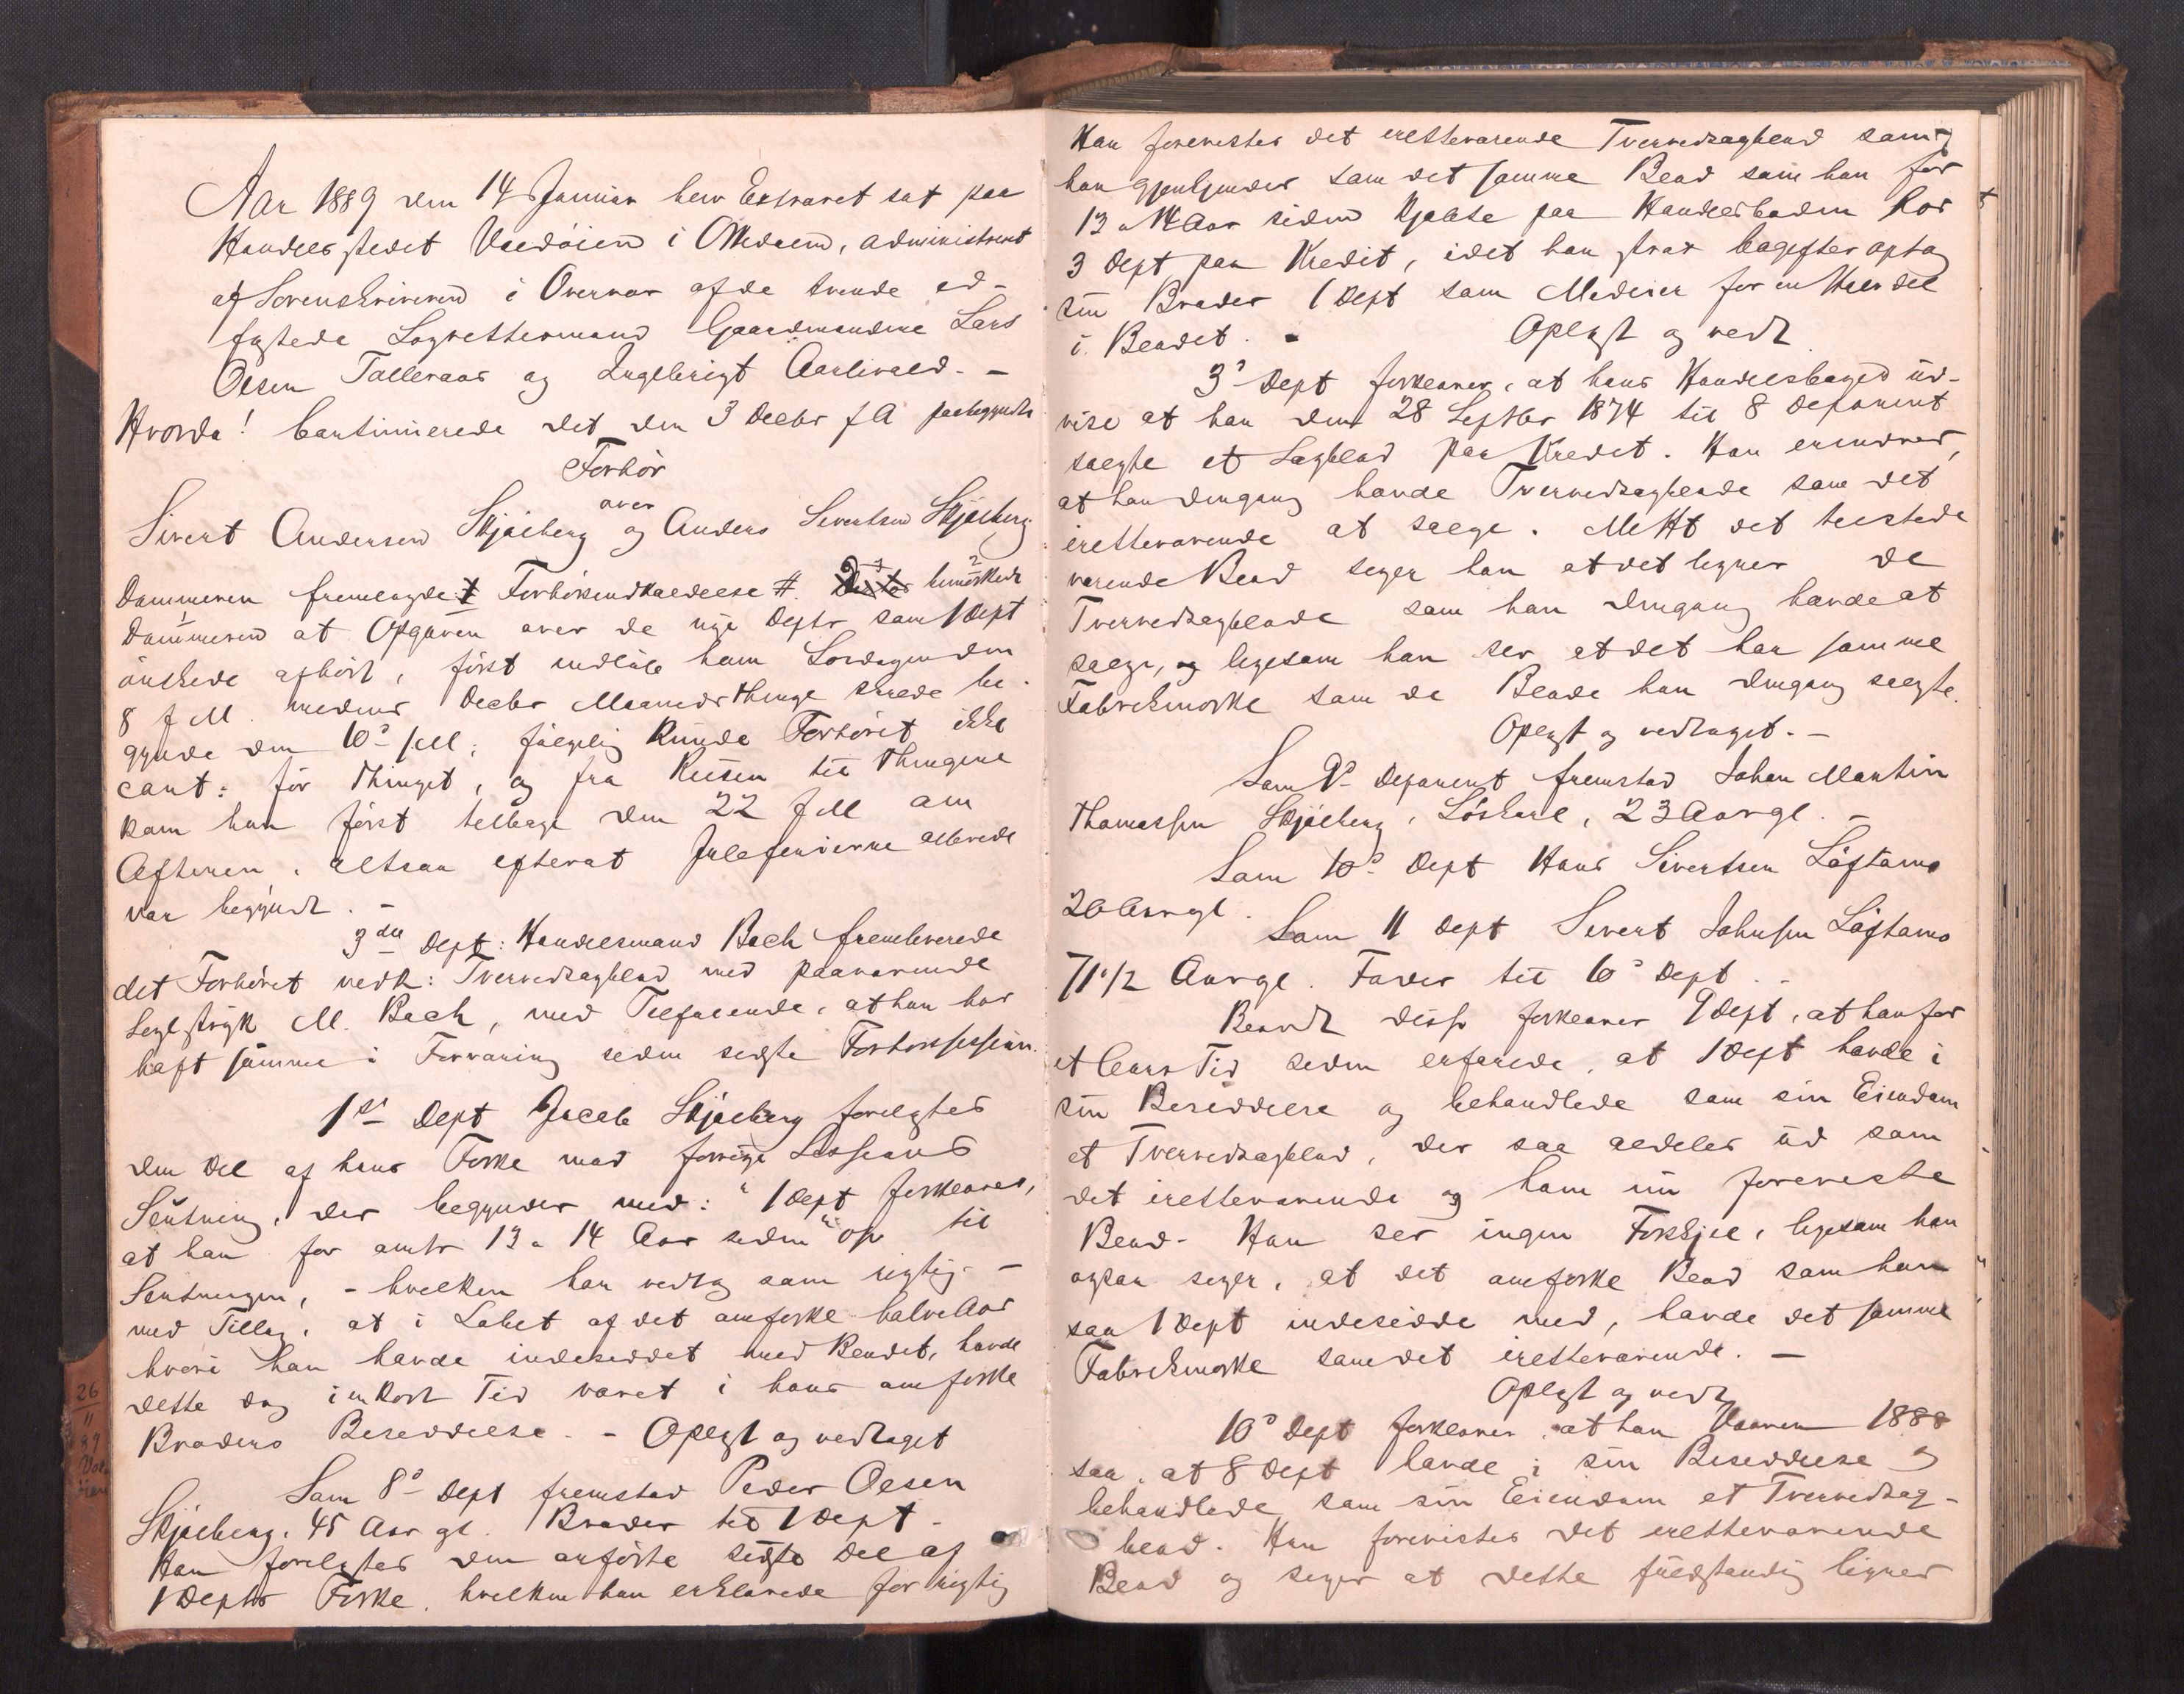 Aar 1889 den 14 Januar blev Extraret sat paa
Handelsstedet Valdöien i Ofredalen, administreret
af Sorenskriveren i Overvær af de tvende ed-
fæstede Lagrettesmænd Gaardmændene Lars
Olsen Talleraas og Ingebrigt Aarlivold. -
Hvorda! Continuerede det den 3 Decbr f A paabegyndte
Forhör
over
Sivert Andersen Skjölberg og Anders Sivertsen Skjölberg
Dommeren fremlagde Forhörsindkaldelse #. bemærkede
Dommeren at Opgaven over de nye Depts som 1 Dept
önskede afhört, först indlöb ham Lördagen den
8 f M. medens Decbr Maanedsthinge skulde be-
gynde den 10de f M; fölgelig kunde Forhöret ikke
cont: för Thinget, og fra Reisen til Thingene
kom han först tilbage den 22 f M om
Aftenen, altsaa efterat Juleferierne allerede
var begyndt. -
3die Dept: Handelsmand Bach fremleverede
det Forhöret vedk: Tvervedsagblad med paaværende
Seglstryk M. Bach, med Tilföiende, at han har
haft samme i Forvaring siden sidste Forhörssession.
1ste Dept Jacob Skjölberg forelæstes
den Del af hans Forkl mod forrige Sessions
Slutning, der begynder med: "1 Dept forklarer,
at han for omtr 13 a 14 Aar siden" osv til
Slutningen, - hvilken han vedtog som rigtig -
med Tillæg, at i Löbet af det omforkl halve Aar
hvori han havde indesiddet med Bladet, havde
dette dog i en kort Tid været i hans omforkl
Broders Besiddelse. - Oplæst og vedtaget
Som 8de Dept fremstod Peder Olsen
Skjölberg, 45 Aar gl. Broder til 1 Dept -
Han forelæstes den anförte sidste Del af
1 Depts Forkl. hvilken han erklærede for rigtig
Han forevistes det iretteværende Tvervedsagblad som
han gjenkjender som det samme Blad som han for
13 a 14 Aar siden kjöbte paa Handelsboden hos
3 Dept paa Kredit, idet han strax bagefter optog
sin Broder 1 Dept som Medeier for en Halvdel
i Bladet. - Oplæst og vedt.
3de Dept forklarer, at hans Handelsböger ud-
vise at han den 28 Septbr 1874 til 8 Deponent
solgte et Sagblad paa Kredit. Han erindrer,
at han dengang havde Tvervedsagblade som det
iretteværende at sælge. Mht det tilstede
værende Blad siger han at det ligner de
Tvervedsagblade som han dengang havde at
sælge, og ligesom han ser at det har samme
Fabrikmærke som de Blade han dengang solgte.
Oplæst og vedtaget. -
Som 9de Deponent fremstod Johan Martin
Thomassen Skjölberg, Löskarl, 23 Aar gl. -
Som 10de Dept Hans Sivertsen Löftamo
20 Aar gl.
Som 11 Dept Sivert Johnsen Löftamo
71 1/2 Aar gl. Fader til 10de Dept. -
Blandt disse forklarer 9 Dept, at han for
et Aars Tid siden erfarede, at 1 Dept havde i
sin Besiddelse og behandlede som sin Eiendom
et Tvervedsagblad, der saa aldeles ud som
det iretteværende og ham nu foreviste
Blad - Han ser ingen Forskjel, ligesom han
ogsaa siger, at det omforkl Blad som han
saa 1 Dept indesidde med, havde det samme
Fabrikmærke som det iretteværende. -
Oplæst og vedt.
10de Dept forklarer, at han Vaaren 1888
saa, at 8 Dept havde i sin Besiddelse og
behandlede som sin Eiendom et Tvervedsag-
blad. Han forevistes det iretteværende
Blad og siger at dette fuldstændig ligner
26
11
89